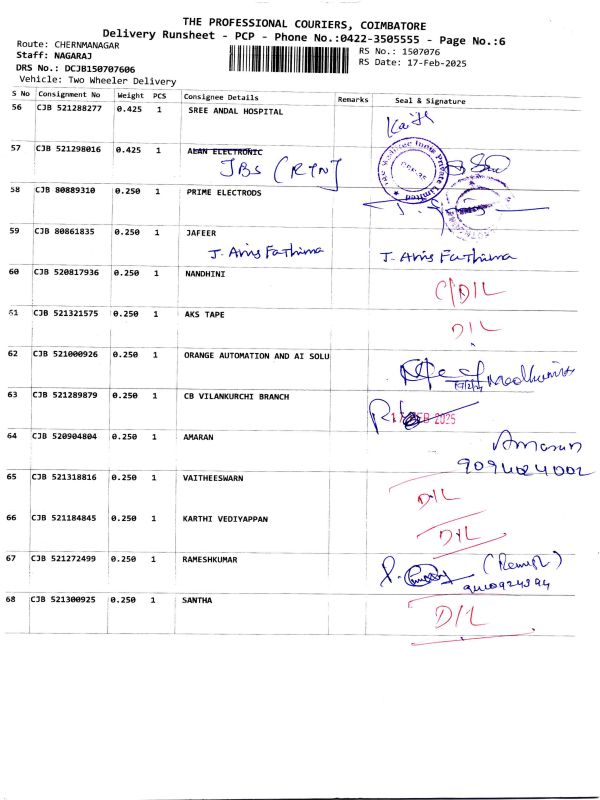 THE PROFESSIONAL COURIERS, COIMBATORE
Delivery Runsheet - PCP - Phone No.:0422-3505555 - Page No.:6
Route: CHERNMANAGAR
RS No.: 1507076
Staff: NAGARAJ
RS Date: 17-Feb-2025
DRS No.: DCJB150707606
Vehicle: Two Wheeler Delivery
S No Consignment No Weight PCS Consignee Details Remarks Seal & Signature
56 CJB 521288277 0.425 1 SREE ANDAL HOSPITAL
57 CJB 521298016 0.425 1 ALAN ELECTRONIC
JBS (RTN)
58 CJB 80889310 0.250 1 PRIME ELECTRODS
59 CJB 80861835 0.250 1 JAFEER
J. Anis Fathima J. Anis Fathima
60 CJB 520817936 0.250 1 NANDHINI
C/D/L
61 CJB 521321575 0.250 1 AKS TAPE
D/L
62 CJB 521000926 0.250 1 ORANGE AUTOMATION AND AI SOLU
63 CJB 521289879 0.250 1 CB VILANKURCHI BRANCH
17 FEB 2025
64 CJB 520904804 0.250 1 AMARAN
Amaran
65 CJB 521318816 0.250 1 VAITHEESWARN
D/L
66 CJB 521184845 0.250 1 KARTHI VEDIYAPPAN
D/L
67 CJB 521272499 0.250 1 RAMESHKUMAR
68 CJB 521300925 0.250 1 SANTHA
D/L